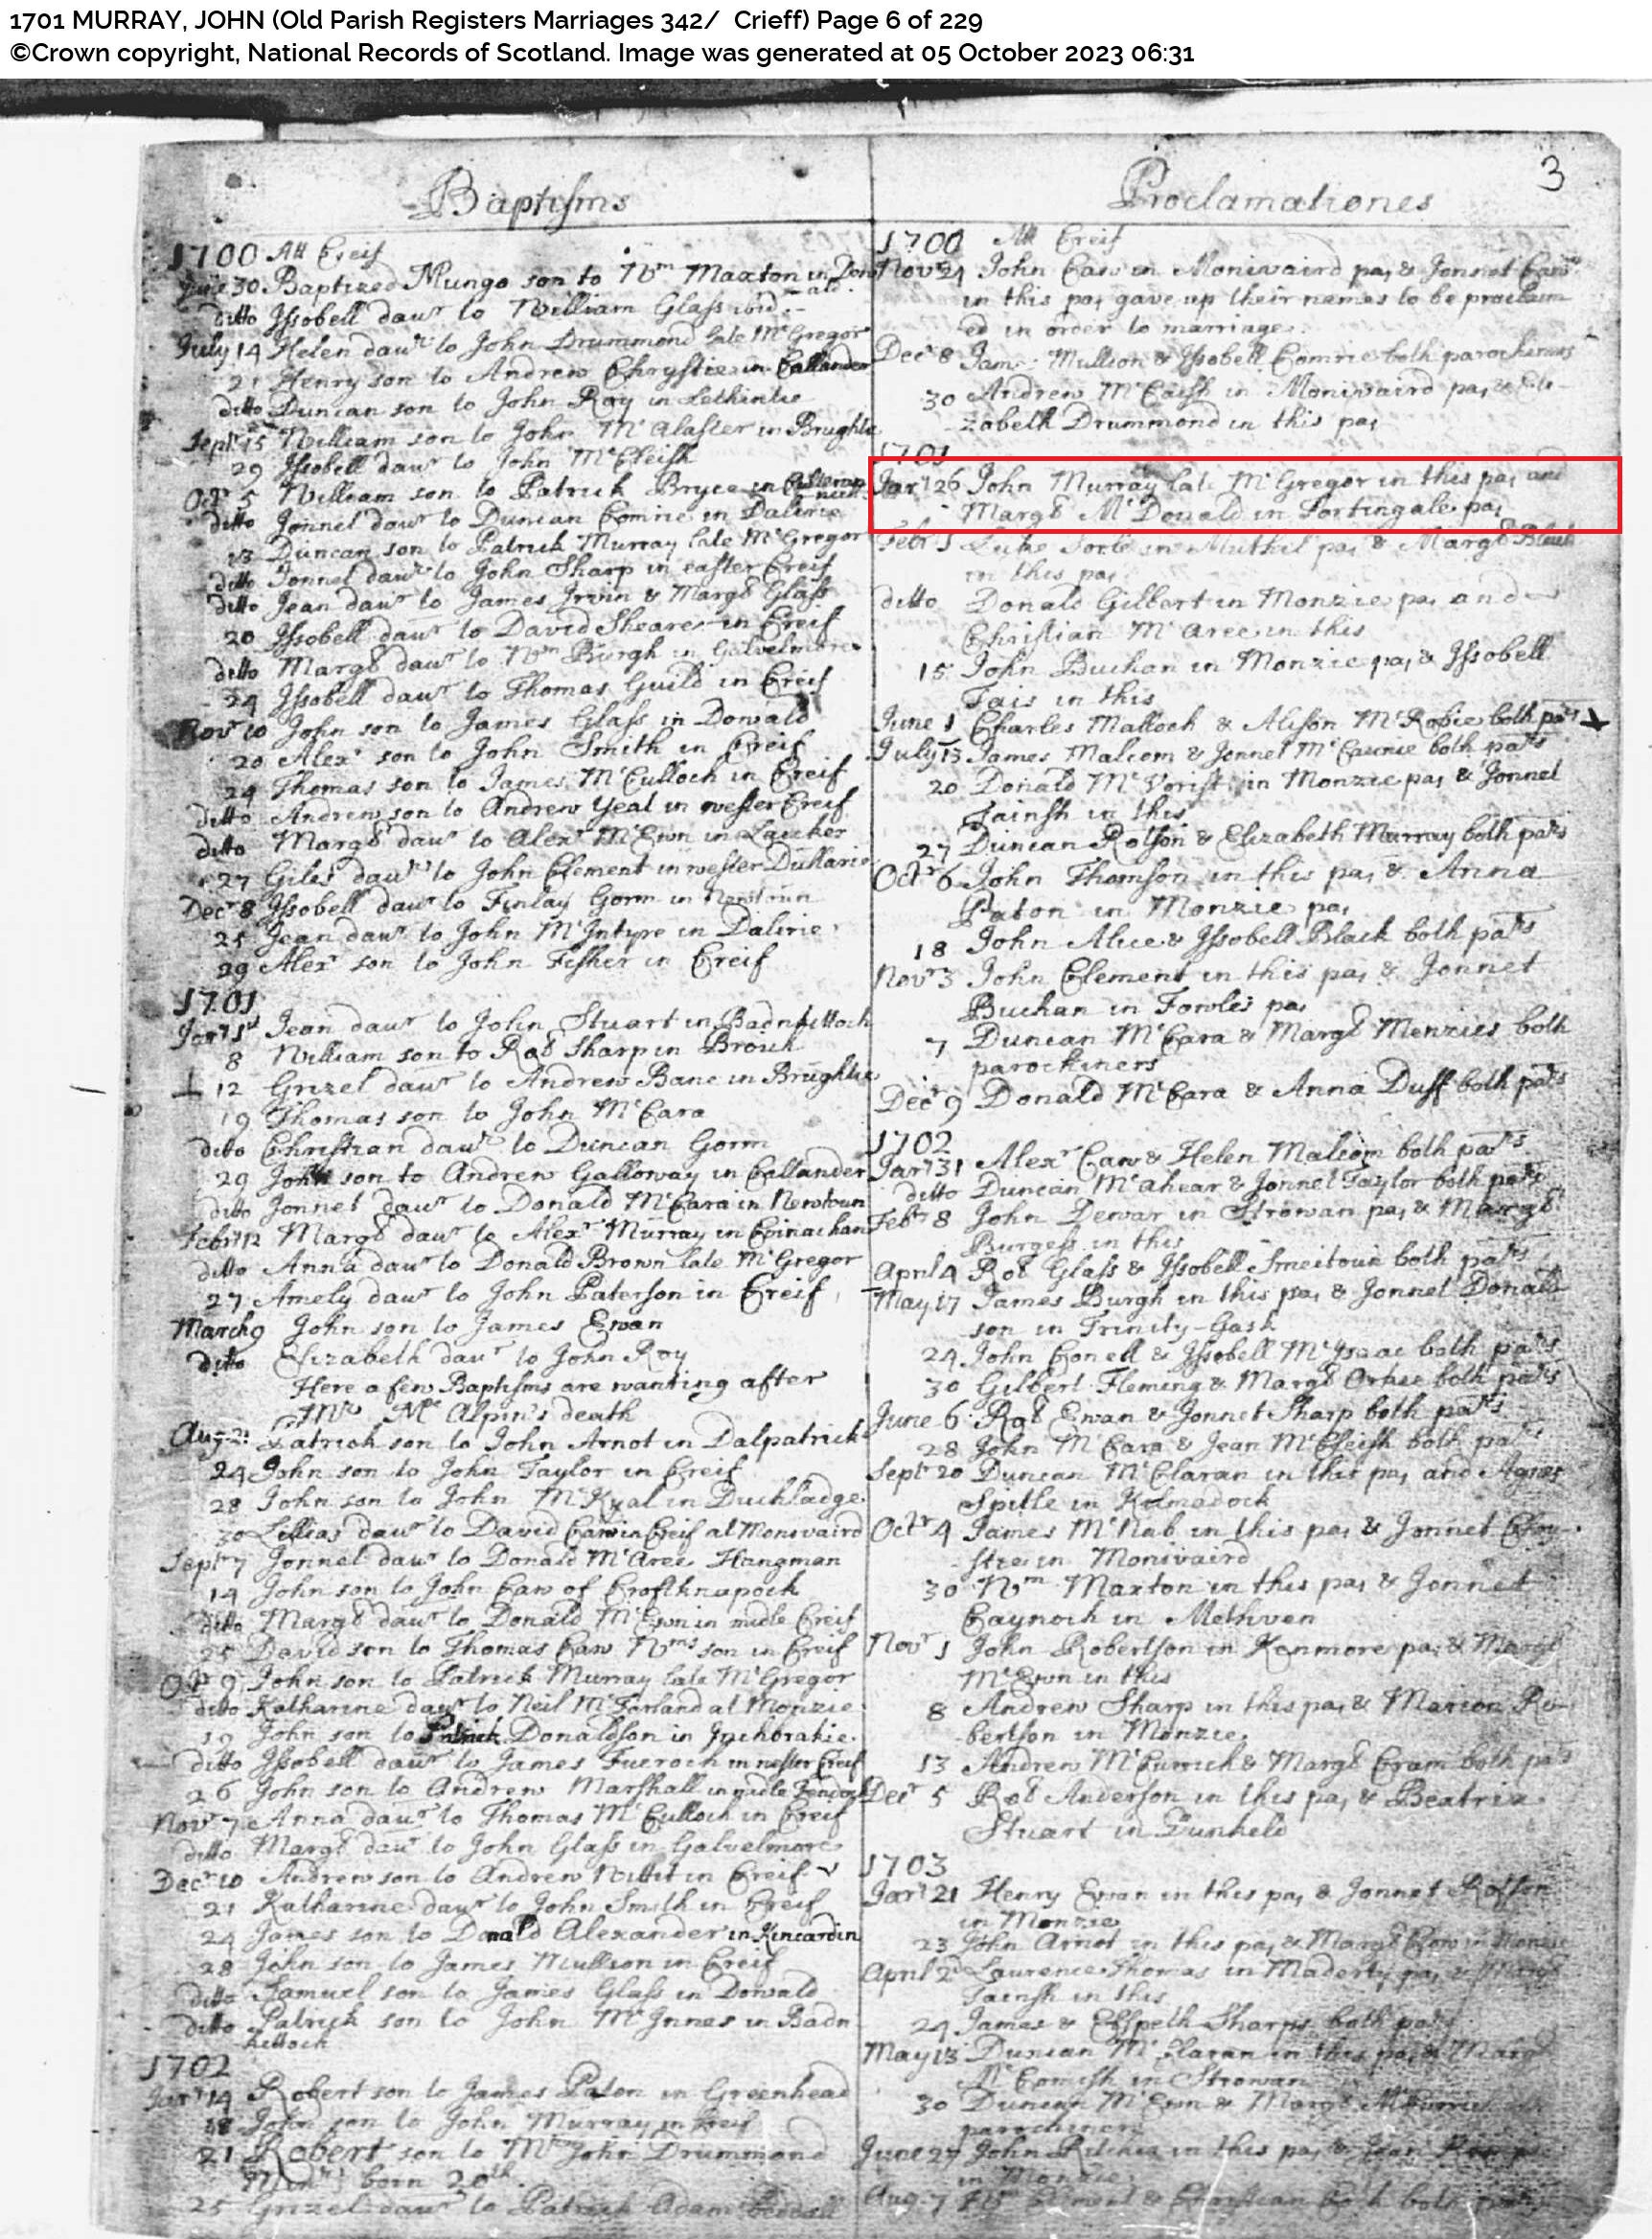 1701 MURRAY, JOHN (Old Parish Registers Marriages 342/ Crieff) Page 6 of 229
©Crown copyright, National Records of Scotland. Image was generated at 05 October 2023 06:31
3
Baptisms
1700 Att Creif
June 30 Baptized Mungo son to Wm Maxton in
ditto Issobell dawr to William Glass ibid
July 14 Helen dawr to John Drummond late McGregor
21 Henry son to Andrew Chrystie in Callander
ditto Duncan son to John Roy in Lethintie
Septr 15 William son to John McAlaster in Brughlie
29 Issobell dawr to John McCleish
Octr 5 William son to Patrick Bryce in
ditto Jonnet dawr to Duncan Comrie in Dalirie
13 Duncan son to Patrick Murray late McGregor
ditto Jonnet dawr to John Sharp in easter Creif
ditto Jean dawr to James Irvin & Margt Glass
20 Issobell dawr to David Sheares in Creif
ditto Margt dawr to Wm Burgh in Galvelmore
24 Issobell dawr to Thomas Guild in Creif
Novr 10 John son to James Glass in Dowald
20 Alexr son to John Smith in Creif
24 Thomas son to James McCulloch in Creif
ditto Andrew son to Andrew Yeal in wester Creif
ditto Margt dawr to Alexr McEwn in
27 Giles dawr to John Clement in wester Dullario
Decr 8 Issobell dawr to Finlay Gorm in Newtoun
25 Jean dawr to John McIntyre in Dalirie
29 Alexr son to John Fisher in Creif
1701
Janr 1st Jean dawr to John Stuart in Badnkittoch
8 William son to Robt Sharp in Broich
12 Grizel dawr to Andrew Bane in Brughlie
19 Thomas son to John McCara
ditto Christian dawr to Duncan Gorm
29 John son to Andrew Galloway in Callander
ditto Jonnet dawr to Donald McCara in Newtoun
Febr 12 Margt dawr to Alexr Murray in Cpinachan
ditto Anna dawr to Donald Brown late McGregor
27 Amely dawr to John Paterson in Creif
March 9 John son to James Ewan
ditto Elizabeth dawr to John Roy
Here a few Baptisms are wanting after
Mr McAlpin's death
Aug: 21 Patrick son to John Arnot in Dalpatrick
24 John son to John Taylor in Creif
28 John son to John McKyal in Duchladge
30 Lillias dawr to David Caw in Creif at Monivaird
Septr 7 Jonnet dawr to Donald McAree Hangman
14 John son to John Caw of Croftknapoch
ditto Margt dawr to Donald McEwn in midle Creif
25 David son to Thomas Caw Wms son in Creif
Octr 9 John son to Patrick Murray late McGregor
ditto Katharine dawr to Neil McForland at Monzie
John son to Patrick Donaldson in Inchbrakie
ditto Issobell dawr to James Fueroch in wester Creif
26 John son to Andrew Marshall in midle
Novr 7 Anna dawr to Thomas McCulloch in Creif
ditto Margt dawr to John Glass in Galvelmore
Decr 10 Andrew son to Andrew in Creif
21 Katharine dawr to John Smith in Creif
24 James son to Donald Alexander in Kincardin
28 John son to James Mullion in Creif
ditto Samuel son to James Glass in Dowald
ditto Patrick son to John McInnes in Badn
kittoch
1702
Janr 14 Robert son to James Paton in Greenhead
18 John son to John Murray in Creif
21 Robert son to Mr John Drummond
born 20th
25 Grizel dawr to Patrick Adam
Proclamationes
1700 Att Creif
Novr 24 John Caw in Monivaird par & Jonnet Caw
in this par gave up their names to be proclaim
ed in order to marriage
Decr 8 Jam: Mullion & Issobell Comrie both parochiners
30 Andrew McCaish in Monivaird par & Eli-
zabeth Drummond in this par
1701
Janr 26 John Murray late McGregor in this par and
Margt McDonald in Fortingale par
Febr 1 Luke in Muthil par & Margt
in this par
ditto Donald Gilbert in Monzie par and
Christian McAree in this
15 John Buchan in Monzie par & Issobell
Fais in this
June 1 Charles Malloch & Alison McRobie both pars
July 13 James Malcom & Jonnet both pars
20 Donald McVorist in Monzie par & Jonnet
Tainsh in this
27 Duncan Rotson & Elizabeth Murray both pars
Octr 6 John Thomson in this par & Anna
Paton in Monzie par
18 John Alice & Issobell Black both pars
Novr 3 John Clement in this par & Jonnet
Buchan in Fowlis par
7 Duncan McCara & Margt Menzies both
parochiners
Decr 9 Donald McCara & Anna Duff both pars
1702
Janr 31 Alexr Caw & Helen Malcom both pars
ditto Duncan McAhear & Jonnet Taylor both pars
Febr 8 John Dewar in Strowan par & Margt
Burgess in this
April 4 Robt Glass & Issobell Smeitoun both pars
May 17 James Burgh in this par & Jonnet Donald
son in Trinity-Gask
24 John Conell & Issobell McIsaac both pars
30 Gilbert Fleming & Margt both pars
June 6 Robt Ewan & Jonnet Sharp both pars
28 John McCara & Jean McCleish both pars
Septr 20 Duncan McClaran in this par and Agnes
Spittle in Kilmadock
Octr 4 James McNab in this par & Jonnet Chry-
stie in Monivaird
30 Wm Maxton in this par & Jonnet
Caynoch in Methven
Novr 1 John Robertson in Kenmore par & Margt
McEwn in this
8 Andrew Sharp in this par & Marion Ro-
bertson in Monzie
13 Andrew McCurrich & Margt Cram both pars
Decr 5 Robt Anderson in this par & Beatrix
Stuart in Dunkeld
1703
Janr 21 Henry Ewan in this par & Jonnet Rotson
in Monzie
23 John Arnot in this par & Margt in Monzie
April 2 Laurence Thomas in Maderty par & Margt
Tainsh in this
24 James & Elspeth Sharps both pars
May 13 Duncan McClaran in this par & Margt
McComish in Strowan
30 Duncan McEwn & Margt
parochiners
June 27 John Ritchie in this par & Jean
in Monzie
Aug: 7 & Christian both pars